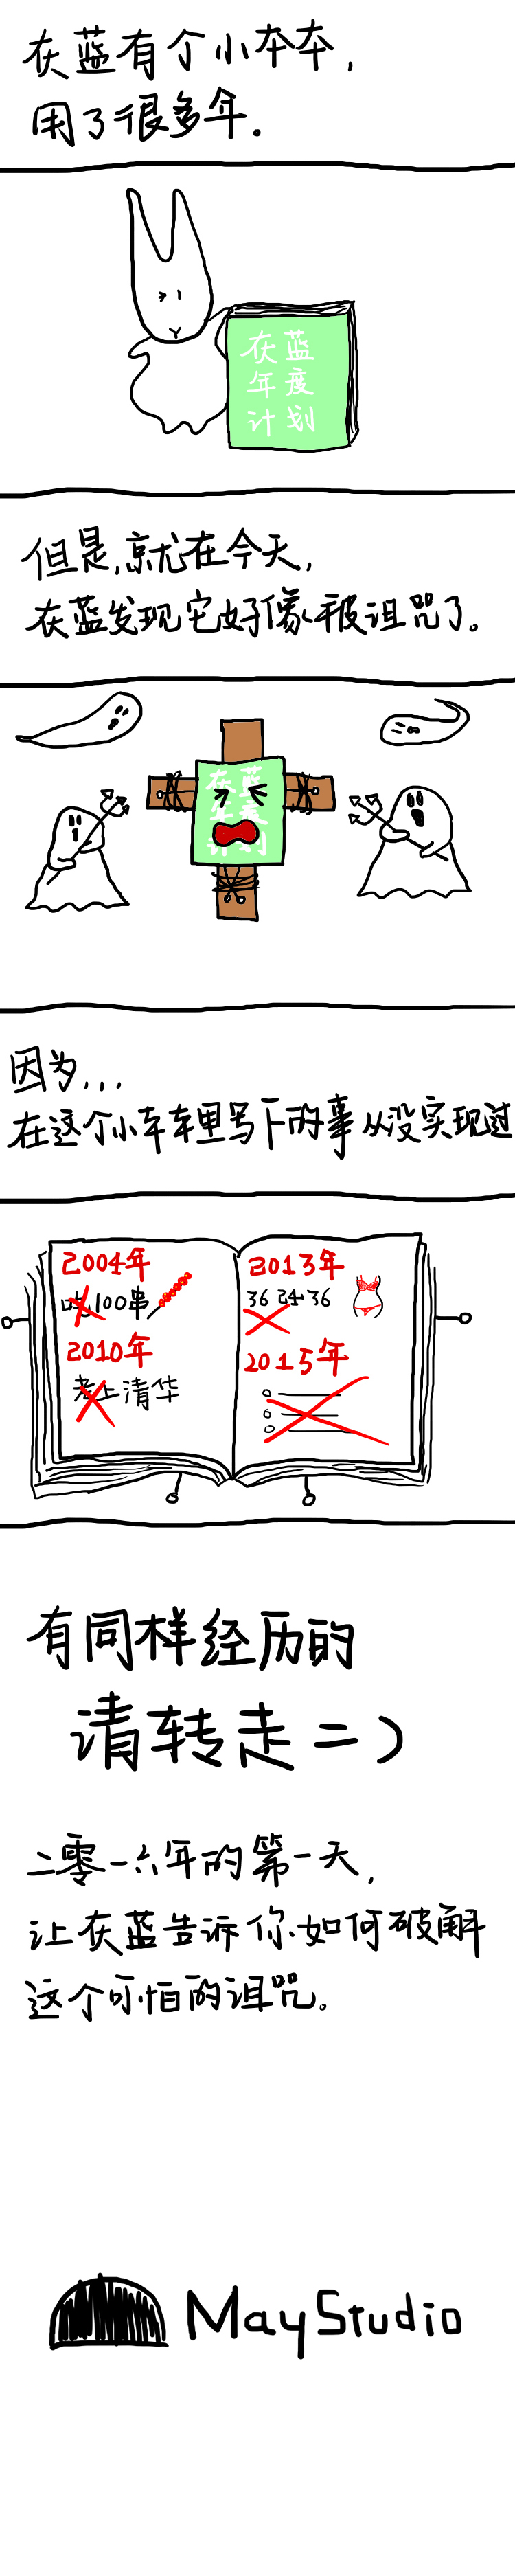 在蓝有个小本本,
用了很多年。
在蓝
年度
计划
但是,就在今天,
在蓝发现它好像被诅咒了。
在蓝
年度
计划
因为...
在这个小本本里写下的事从没实现过
2004年
吃100串
2010年
考上清华
2013年
36 24 36
2015年
有同样经历的
请转走=)
二零一六年的第一天,
让在蓝告诉你如何破解
这个可怕的诅咒。
MayStudio